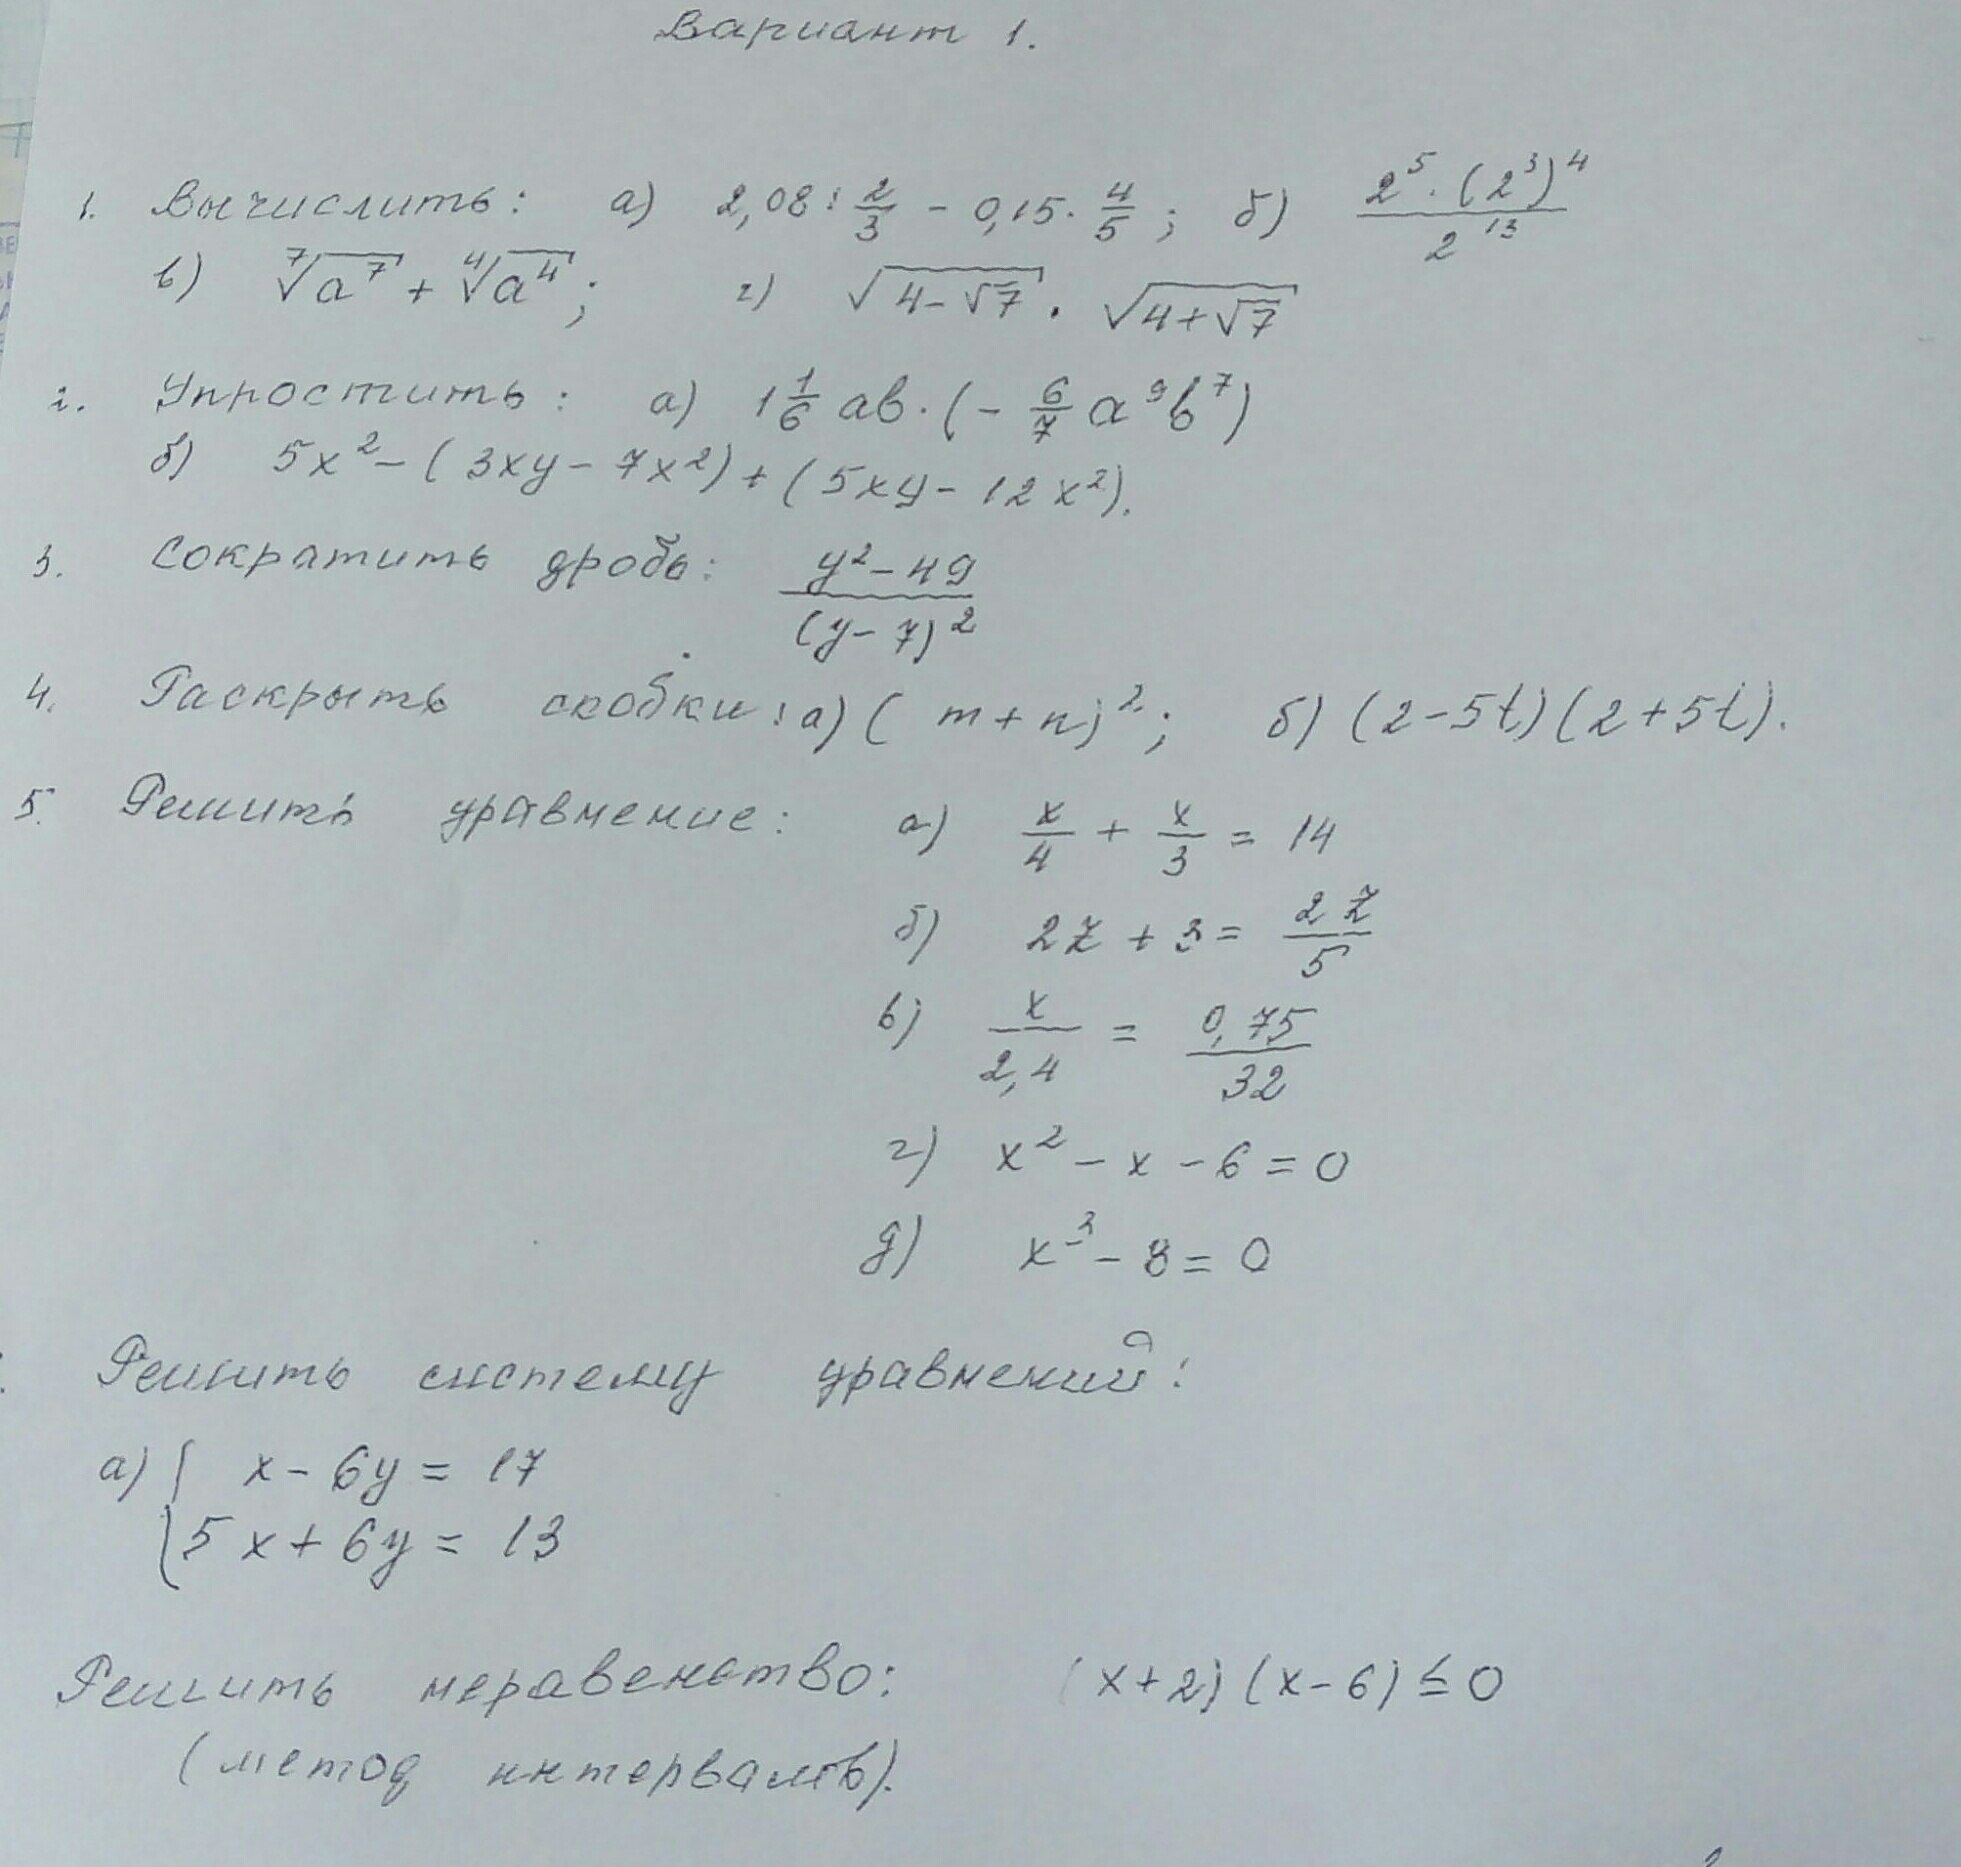 Вариант 1.
1. Вычислить: а) 2,08 : 2/3 - 0,15 · 4/5 ; б) 2⁵ · (2³)⁴ / 2¹³
в) ⁷√a⁷ + ⁴√a⁴ ; г) √(4-√7) · √(4+√7)
2. Упростить: а) 1 1/6 ab · (- 6/7 a⁹b⁷)
б) 5x² - (3xy - 7x²) + (5xy - 12x²).
3. Сократить дробь: y² - 49 / (y - 7)²
4. Раскрыть скобки: а) (m + n)² ; б) (2 - 5t)(2 + 5t).
5. Решить уравнение: а) x/4 + x/3 = 14
б) 2z + 3 = 2z/5
в) x/2,4 = 0,75/32
г) x² - x - 6 = 0
д) x³ - 8 = 0
Решить систему уравнений:
а) { x - 6y = 17
5x + 6y = 13
Решить неравенство: (x + 2)(x - 6) ≤ 0
(метод интервалов).